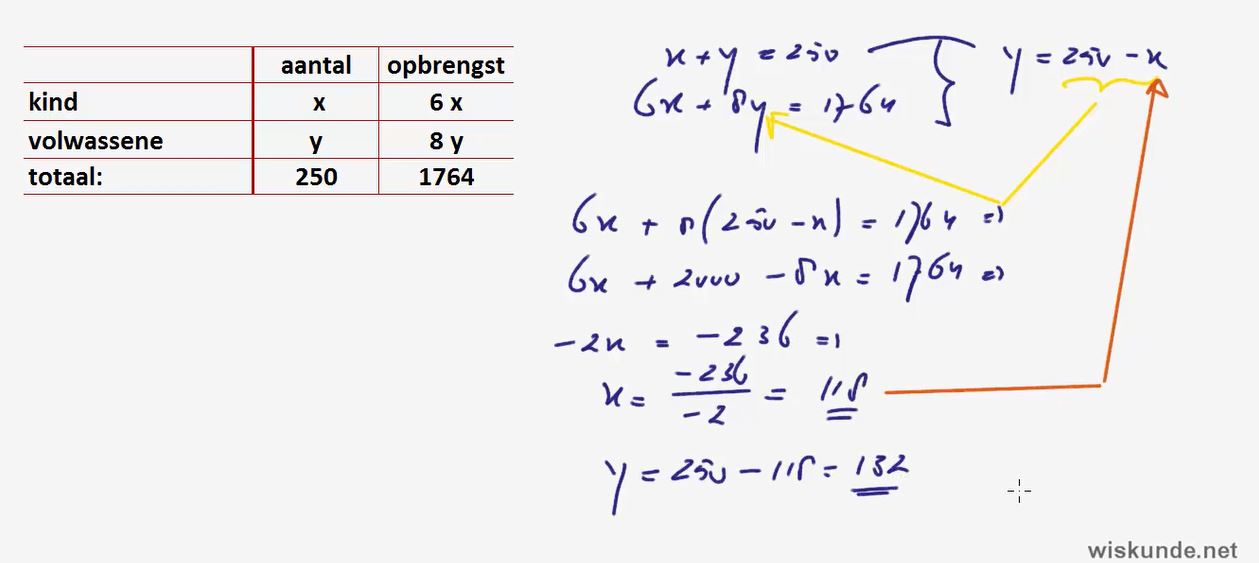 aantal opbrengst
kind x 6 x
volwassene y 8 y
totaal: 250 1764
x + y = 250
y = 250 - x
6x + 8y = 1764
6x + 8(250 - x) = 1764 =>
6x + 2000 - 8x = 1764 =>
-2x = -236 =>
x = -236 / -2 = 118
y = 250 - 118 = 132
wiskunde.net